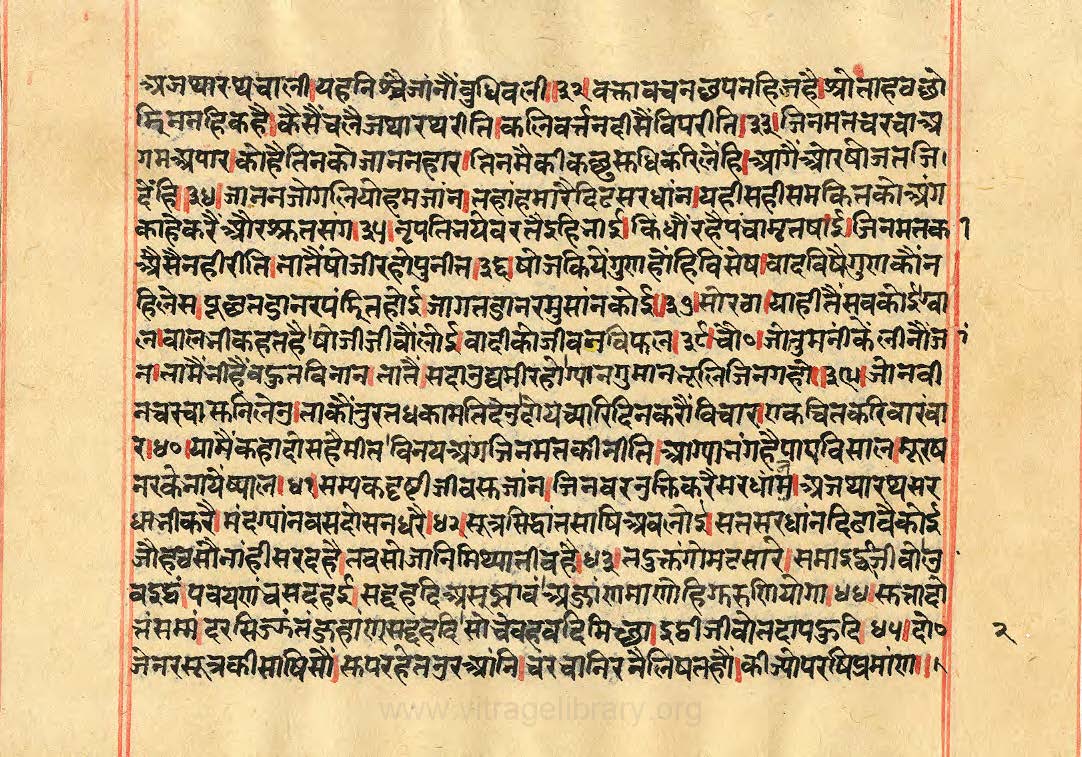 अजथारथचाली।यहनिश्चैजांनौंबुधिवली।३२।वक्तावचनछपनहिजहै।श्रोताहवछो
मिनमहिकहै।कैसैंचलैजथारथरीति।कलिवर्त्तनदीसैविपरीति।३३।जिनमतचरचाअ
गमअपार।कोहैतिनकोजाननहार।तिनमैकीकछुसुधिकरिलेंहि।आगैंओरषोजतजि।
देंहि।३४।जाननजोगलियोहमजांन।तहांहमारैदिटसरधांन।यहीसहीसमकितकोअंग
काहेकरैंऔरअ्रुतसंग।३५।नृपतिनयेवरतैइहिनाई।किधौंरहैपंचामृतषाई।जिनमतक १
अैसैनहीरीति।तातैंषोजीरहोपुनीत।३६।षोजकियेंगुणहोंहिविसेष।वादविषैगुणकौंन
हिलेस।पूछतछानरपंडितहोई।जागतछानरमुसांनकोई।३७।सोरठा।याहीतैंसबकोई।ग्वा
ल।बालजीकहतहै।षोजीजीवौलोई।वादीकोजीवनविफल।३८।चौ०।जोतुमनींकैंलीनौंज नं
न।तामैंभीहैबहुतविनान।तातैंसदाउद्यमीरहो।ग्यानगुमानतूलिजिनगहो।३९।जोनवी
नचरचासुनिलेउ।ताकौंतुरतधकामतिदेउ।दोयच्यारिदिनकरौंविचार।एकचितकरिवारंवा
र।४०।यामैकहादोसहैमीत।विनयअंगजिनमतकीनीति।आग्यानंगहैपापविसाल।मूरष
नरकेनायेष्याल।४१।सम्यकदृष्टीजीवसुजांन।जिनवरउक्तिकरैसरधांन।अजथारथसर
धानीकरै।मंदग्यांनवसदोसनधरै।४२।सूत्रसिद्धांतसाषिअवलोई।सतसरधांनदिठावैकोई
जौहवसौनांहीसरदहै।तवसोजानिमिथ्यातीवहै।४३।तदुक्तंगोमटसारे।समाइठ्ठीजीवोउ
वइठ्ठं।पवयणंचसदहई।सद्दहदिअसप्भावं।अंजांणमाणोहिगुरुणियोगा।४४।सुत्तादो
तंसम्मं।दरसिज्जंतंजहाणसद्दहदि।सोचेवहवदिमिच्छा।इठ्ठीजीवोतदापहुदि।४५।दो० २
जेनरसूत्रकीसाषिसौं।सुपरहेतउरआंनि।चरचानिरनैलिषतहौं।कीज्योपरषिप्रमांण।।
www.vitragelibrary.org